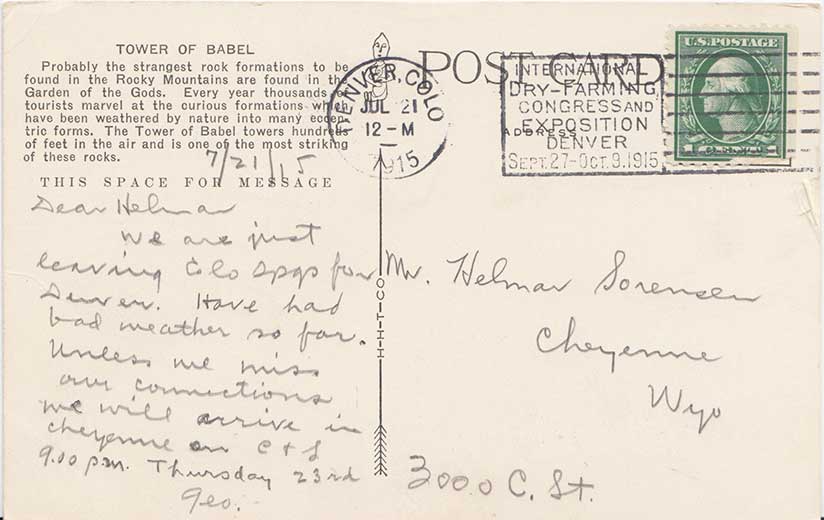 TOWER OF BABEL
Probably the strangest rock formations to be
found in the Rocky Mountains are found in the
Garden of the Gods. Every year thousands of
tourists marvel at the curious formations which
have been weathered by nature into many eccen-
tric forms. The Tower of Babel towers hundreds
of feet in the air and is one of the most striking
of these rocks.
7/21/15
THIS SPACE FOR MESSAGE
Dear Helmar
We are just
leaving Colo Spgs for
Denver. Have had
bad weather so far.
Unless we miss
our connections
we will arrive in
Cheyenne on C & S
9.00 p.m. Thursday 23rd
Geo.
H-H-T-CO
POST CARD
ADDRESS
DENVER, COLO
JUL 21
12-M
1915
INTERNATIONAL
DRY-FARMING
CONGRESS AND
EXPOSITION
DENVER
SEPT. 27-OCT. 9. 1915
U.S. POSTAGE
1
1
Mr. Helmar Sorensen
Cheyenne
Wyo
3000 C. St.